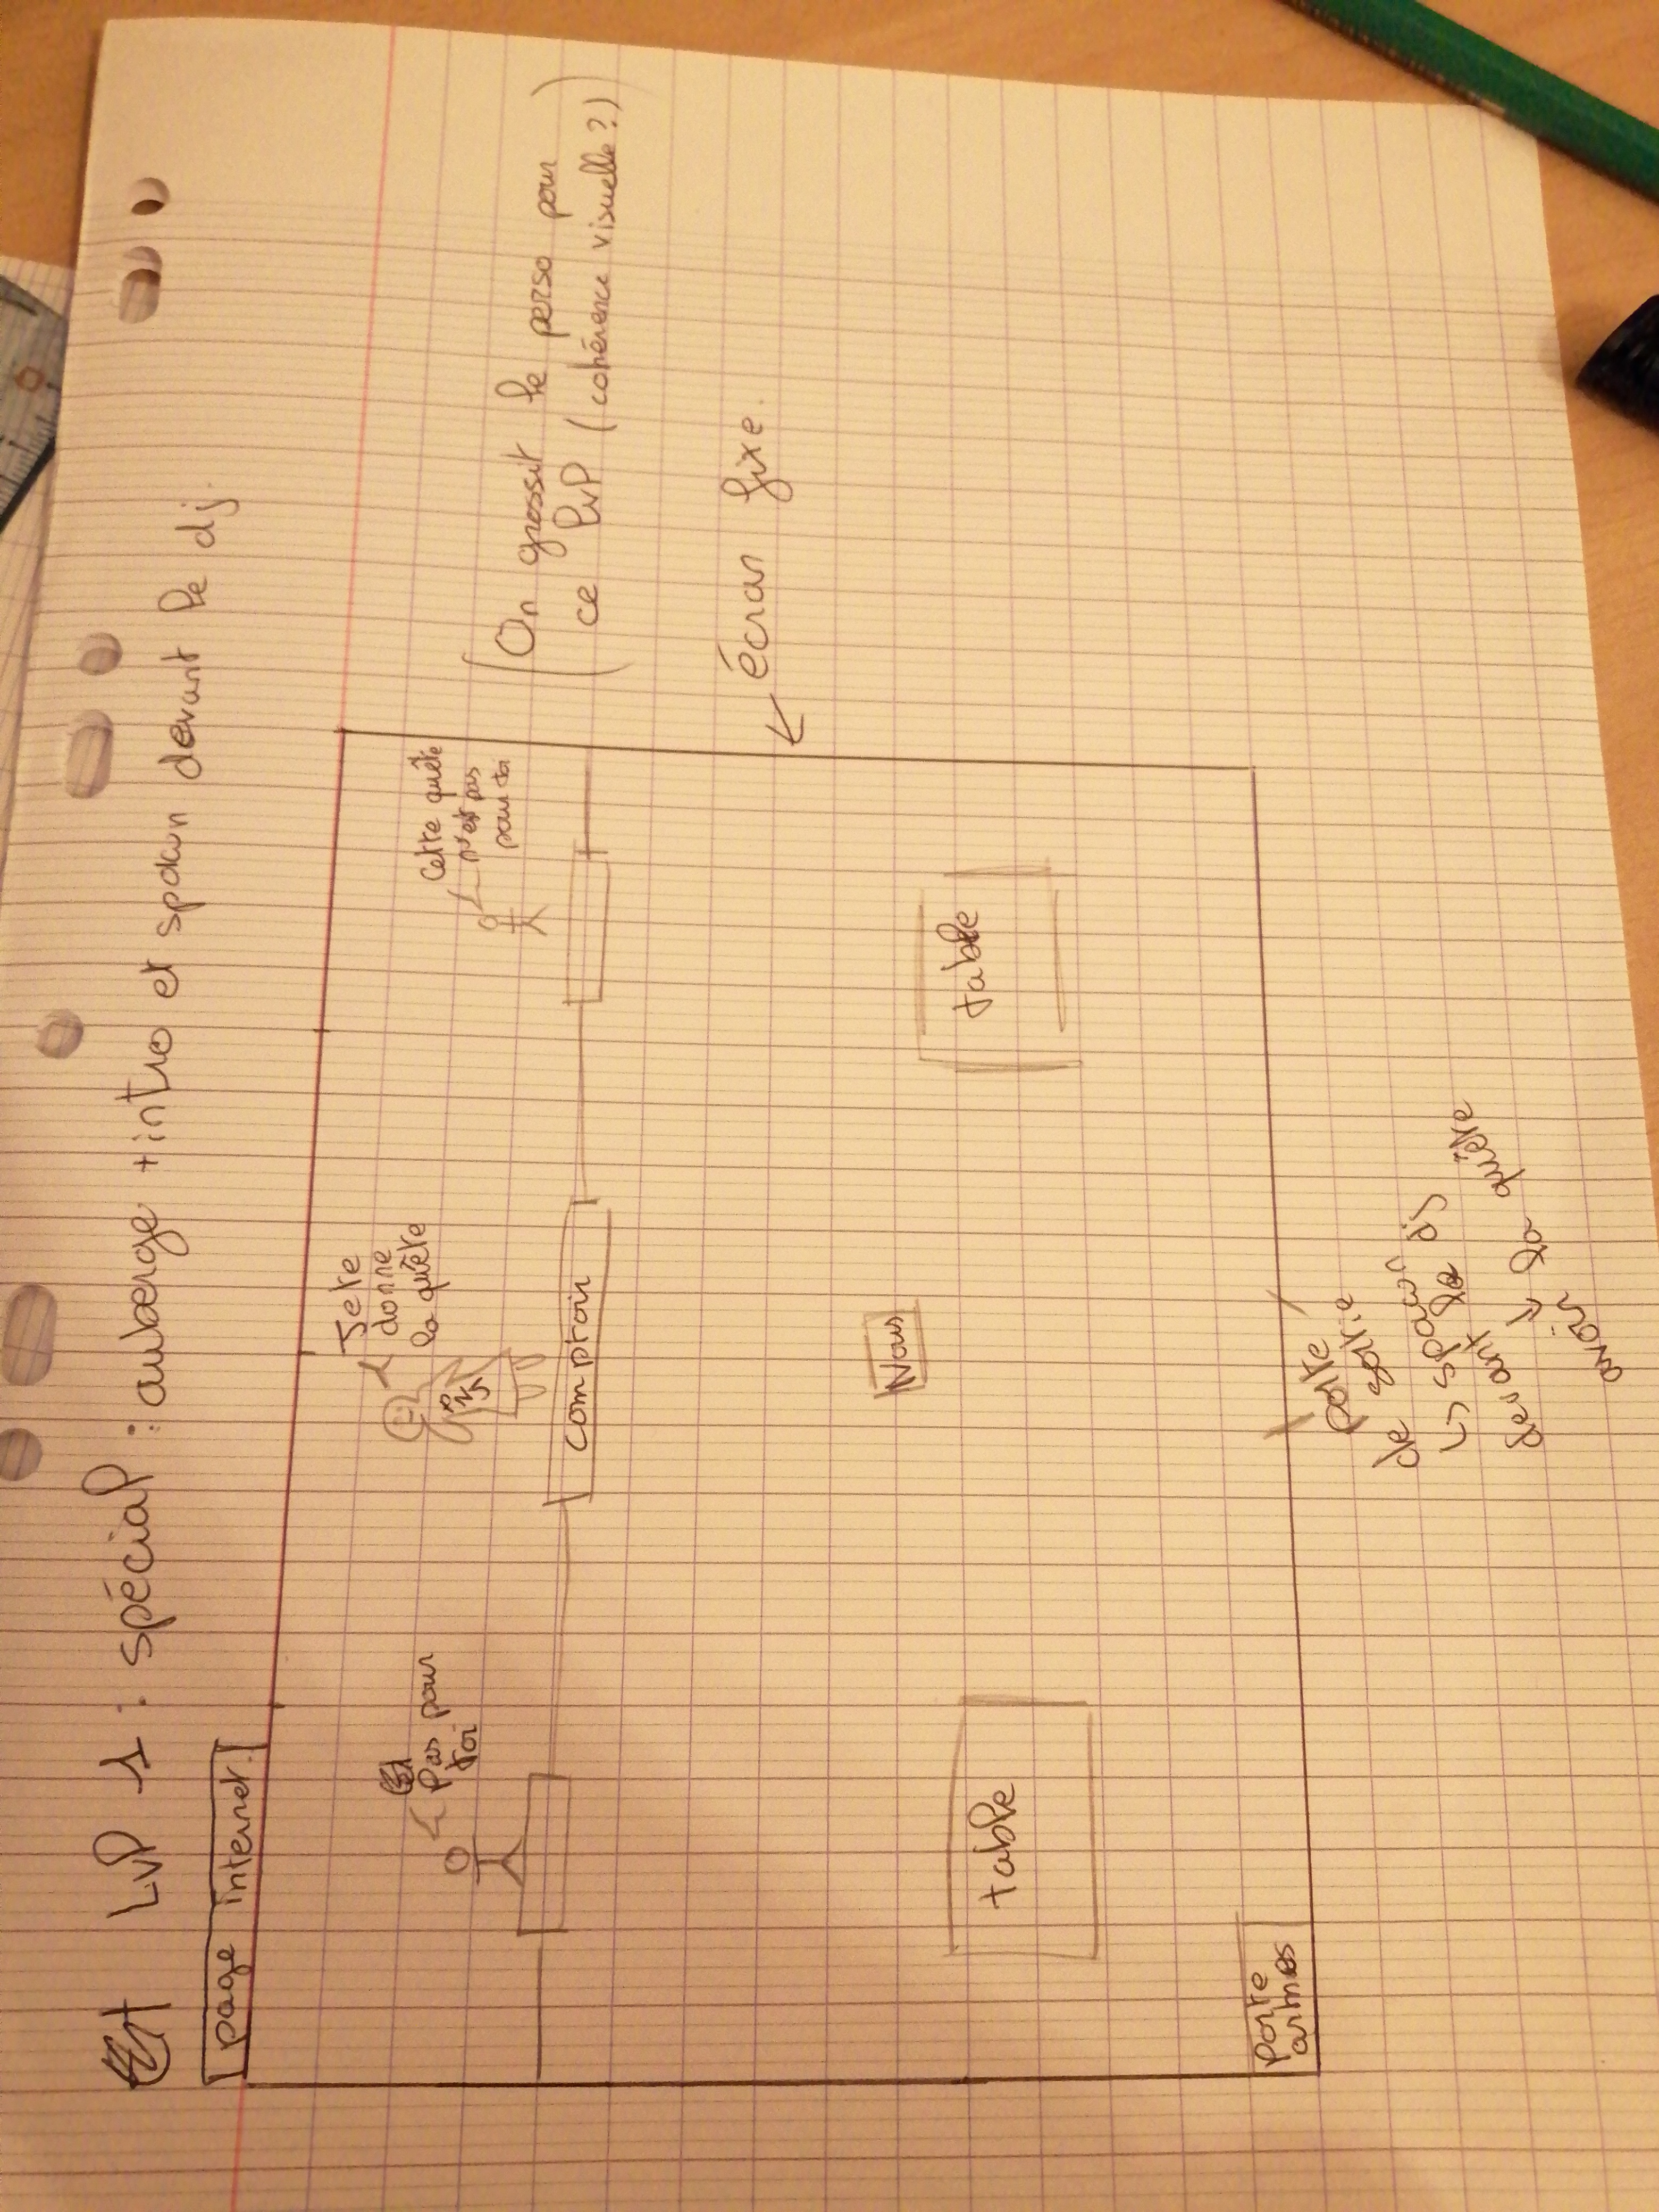 Lvl 1 : spécial : auberge + intro et spawn devant le dj.
page internet.
(On grossit le perso pour
ce lvl (cohérence visuelle ?))
← écran fixe.
Pas pour
toi
Je te
donne
la quête
PNJ
Cette quête
n'est pas
pour toi
comptoir
Nous
table
table
Porte
armes
porte
de sortie
↳ spawn
devant le dj
↓
la quête